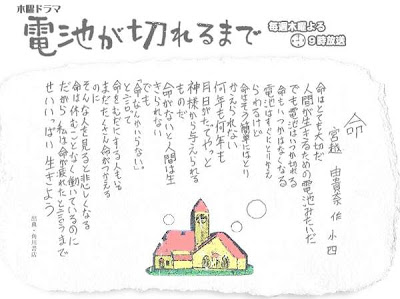 木曜ドラマ
電池が切れるまで
毎週木曜よる
9時放送
命
宮越 由貴奈 作 小四
命はとても大切だ
人間が生きるための電池みたいだ
でも電池はいつか切れる
命もいつかはなくなる
電池はすぐにとりかえ
られるけど
命はそう簡単にはとり
かえられない
何年も何年も
月日がたってやっと
神様から与えられる
ものだ
命がないと人間は生
きられない
でも
「命なんかいらない。」
と言って
命をむだにする人もいる
まだたくさん命がつかえる
のに
そんな人を見ると悲しくなる
命は休むことなく働いているのに
だから 私は命が疲れたと言うまで
せいいっぱい生きよう
出典・角川書店